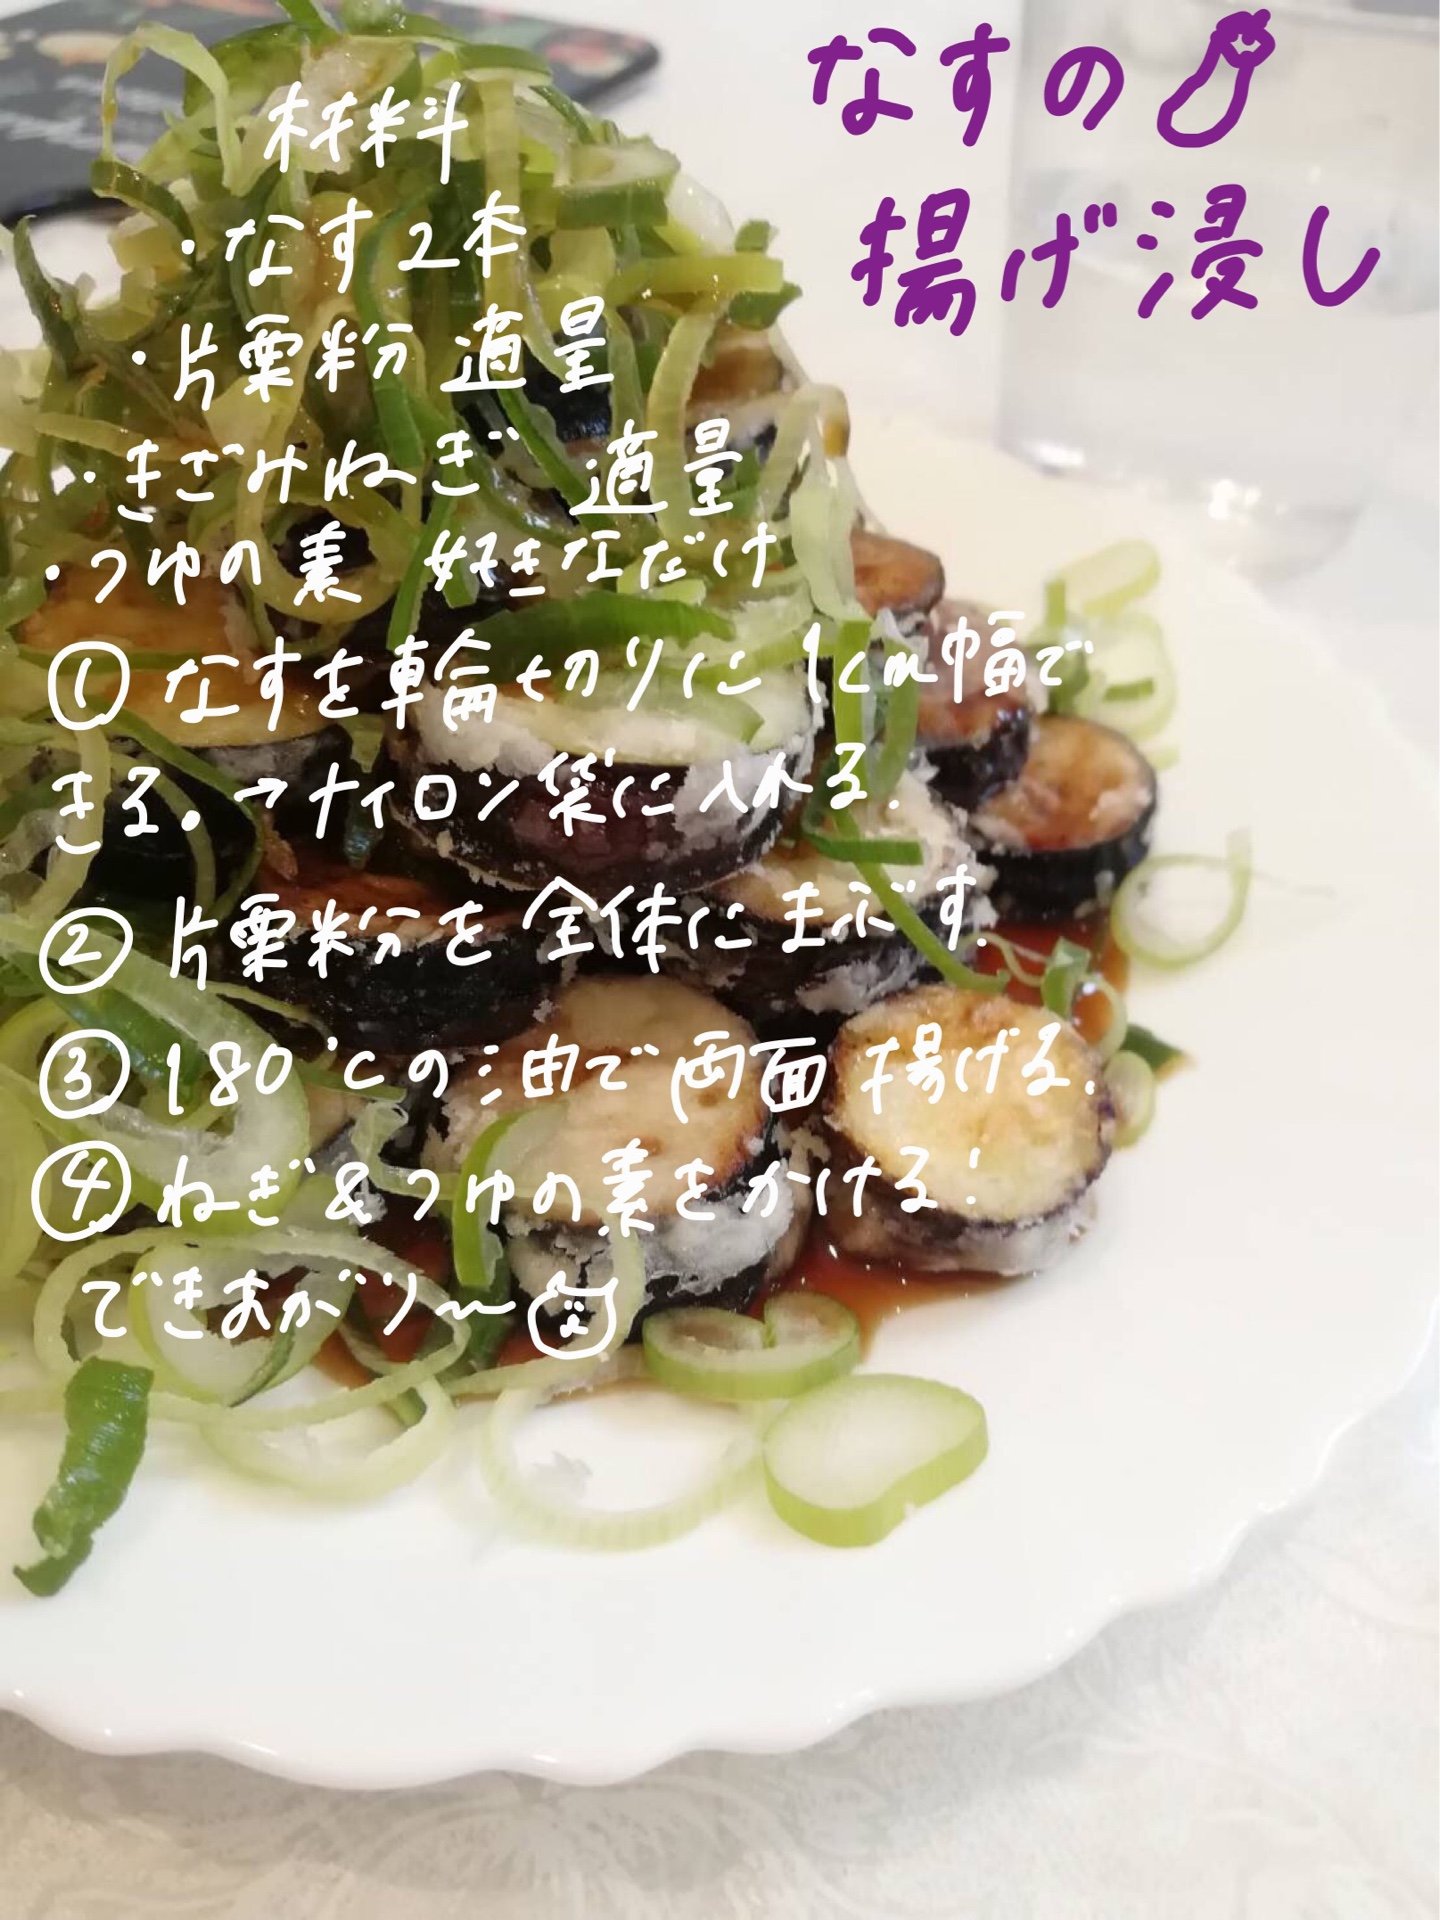 なすの
揚げ浸し
材料
・なす2本
・片栗粉 適量
・きざみねぎ 適量
・つゆの素 好きなだけ
① なすを輪切りに1cm幅で
きる。→ナイロン袋に入れる.
② 片栗粉を全体にまぶす.
③ 180℃の油で両面揚げる.
④ ねぎ&つゆの素をかける!
できあがり〜